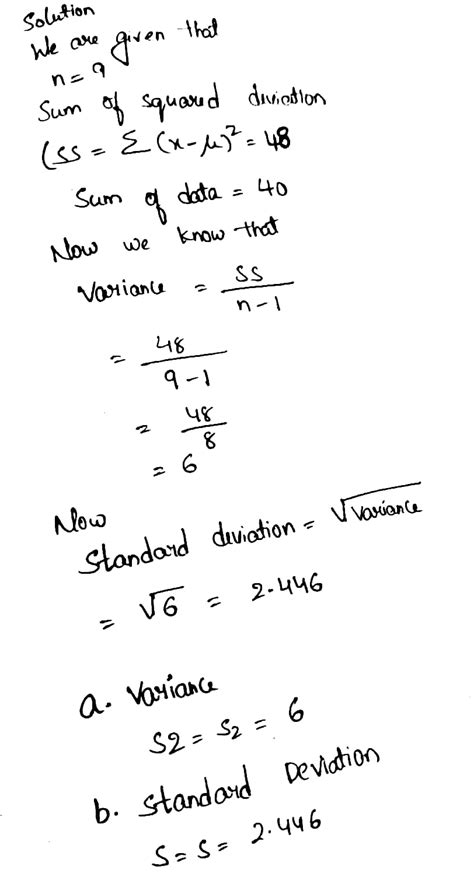 Solution
We are given that
n = 9
Sum of squared diviation
(SS = Σ (x-μ)² = 48
Sum of data = 40
Now we know that
Variance = SS / n-1
= 48 / 9-1
= 48 / 8
= 6
Now
Standard deviation = √variance
= √6 = 2.446
a. Variance
S2 = S₂ = 6
b. Standard Deviation
S = S = 2.446